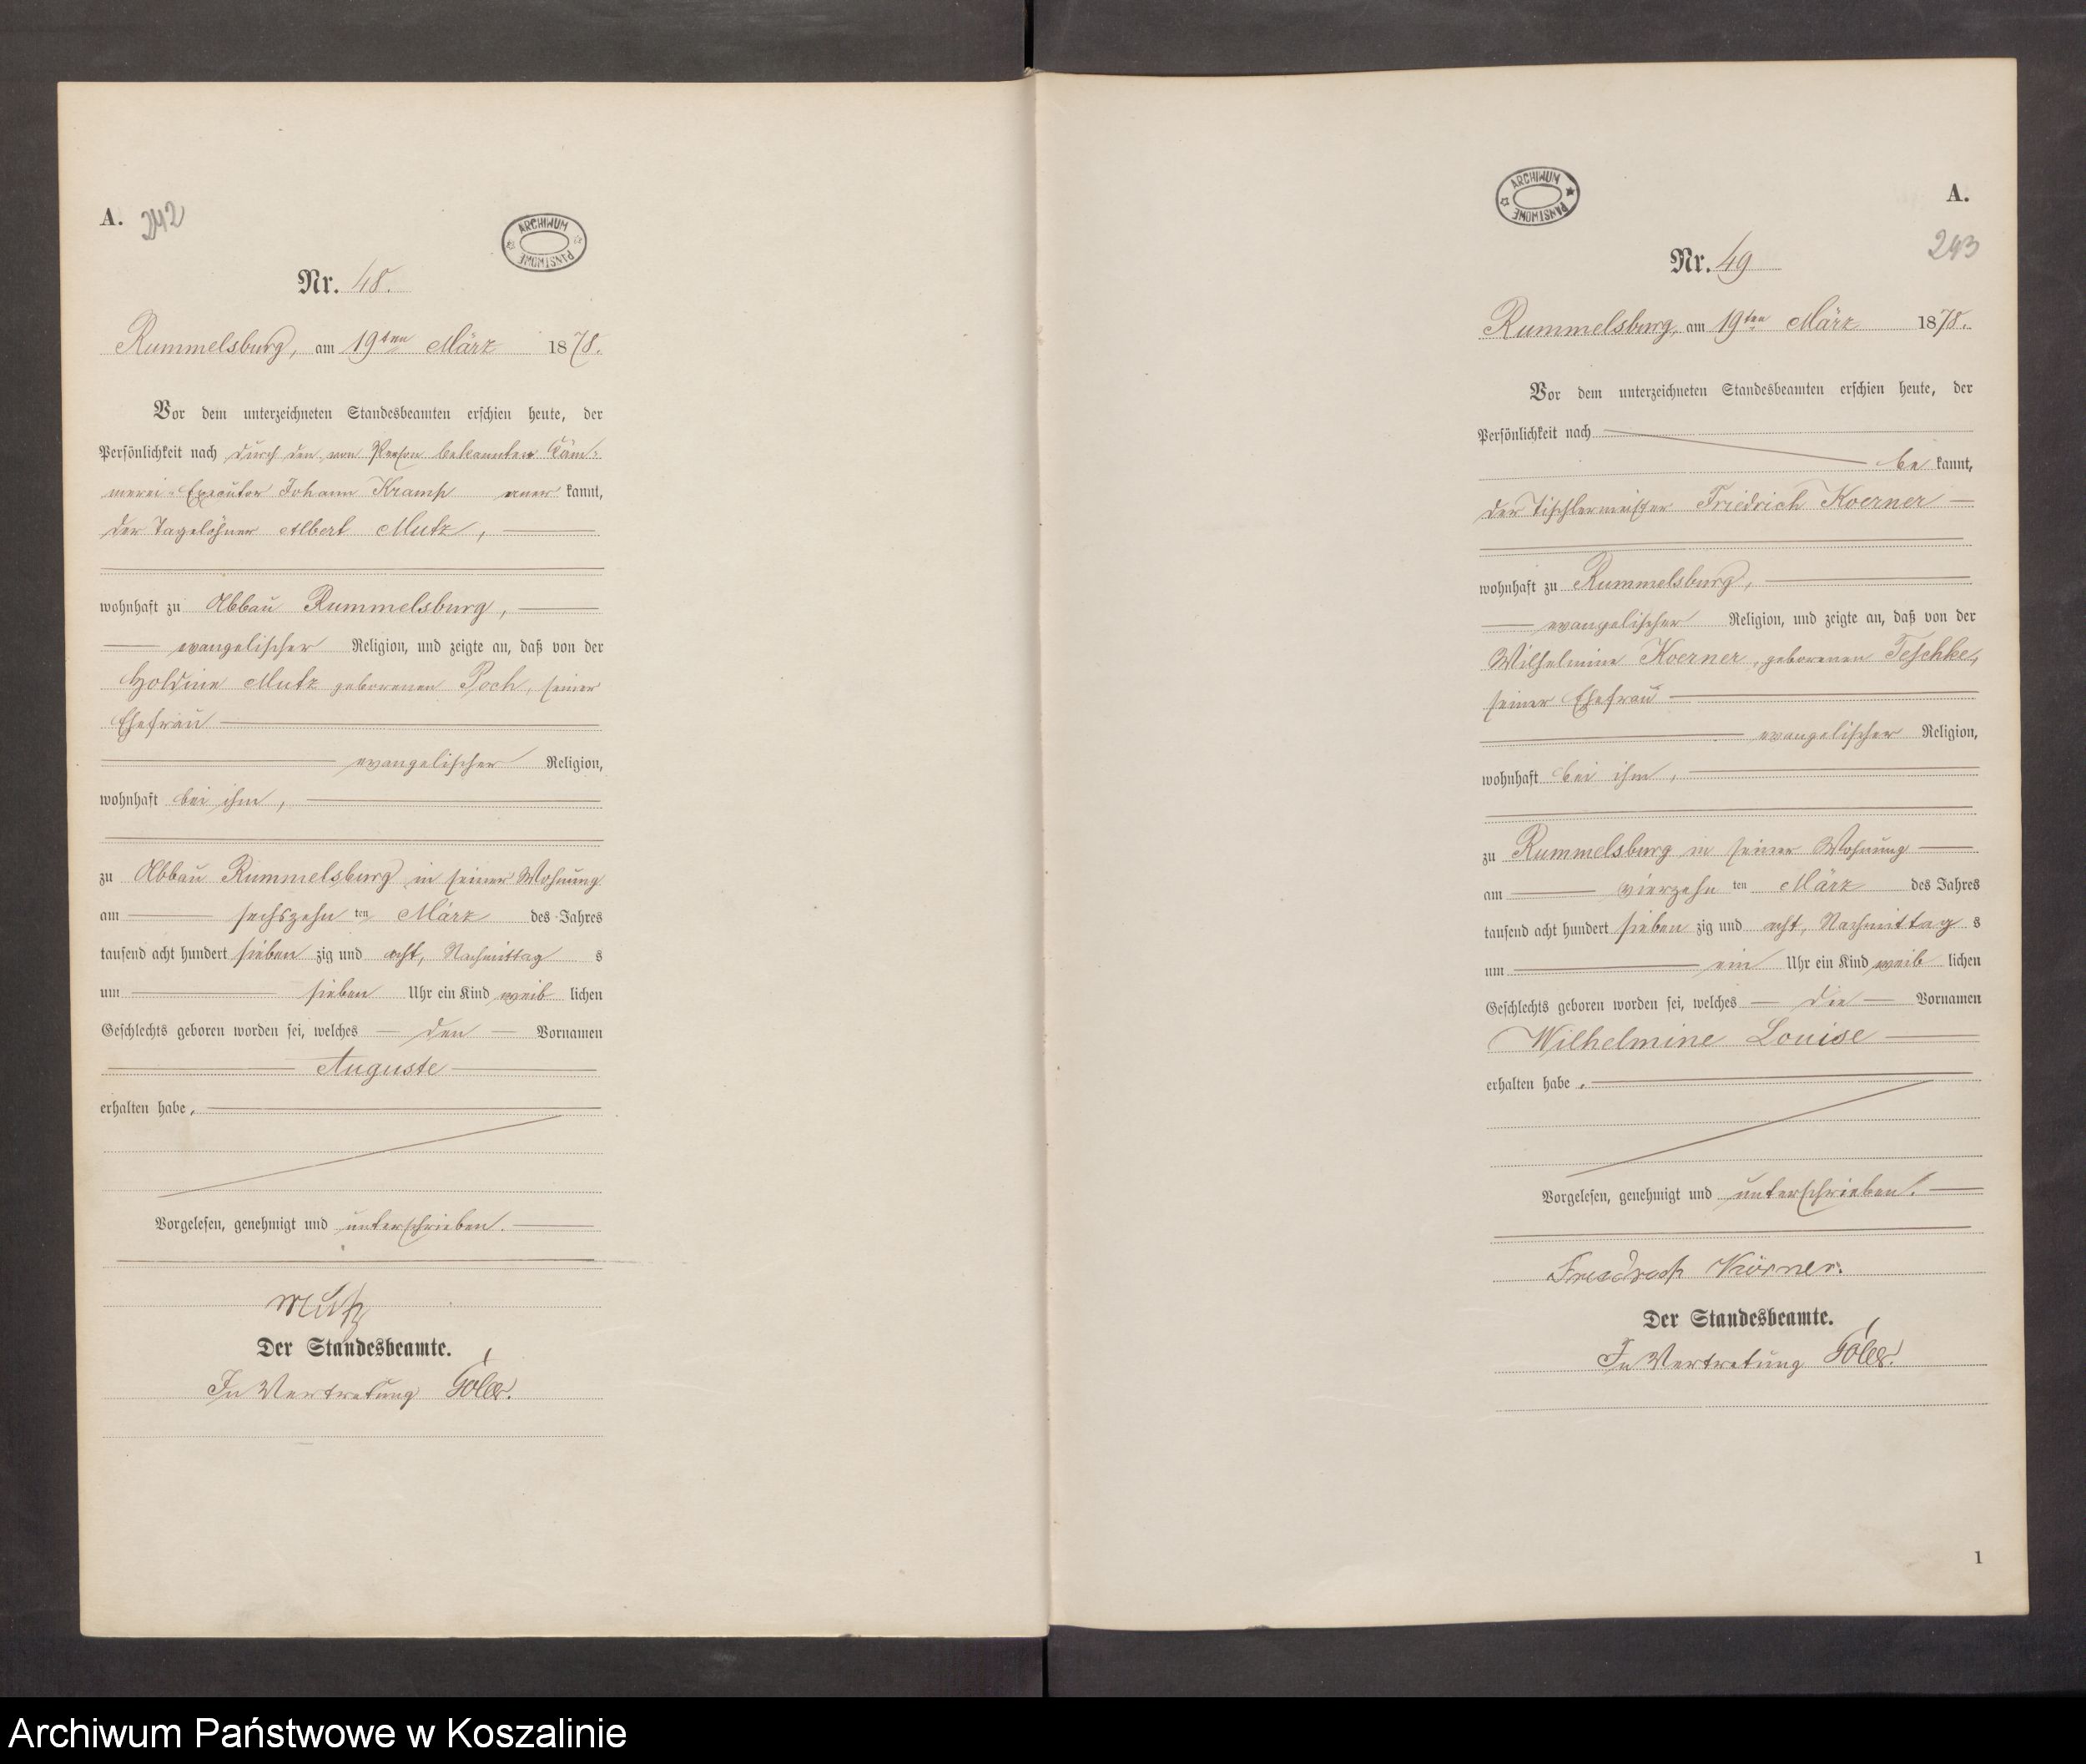 A. 242
ARCHIWUM PAŃSTWOWE
Nr. 48.
Rummelsburg, am 19ten März 1878.
Vor dem unterzeichneten Standesbeamten erschien heute, der
Persönlichkeit nach durch den von Person bekannten Käm-
merei-Executor Johann Kramp aner kannt,
der Tagelöhner Albert Mutz,
wohnhaft zu Abbau Rummelsburg,
evangelischer Religion, und zeigte an, daß von der
Holdine Mutz geborenen Poch, seiner
Ehefrau
evangelischer Religion,
wohnhaft bei ihm,
zu Abbau Rummelsburg in seiner Wohnung
am sechszehn ten März des Jahres
tausend acht hundert sieben zig und acht, Nachmittag s
um sieben Uhr ein Kind weib lichen
Geschlechts geboren worden sei, welches den Vornamen
Auguste
erhalten habe.
Vorgelesen, genehmigt und unterschrieben.
Mutz
Der Standesbeamte.
In Vertretung
ARCHIWUM PAŃSTWOWE
A.
243
Nr. 49
Rummelsburg, am 19ten März 1878.
Vor dem unterzeichneten Standesbeamten erschien heute, der
Persönlichkeit nach
be kannt,
der Tischlermeister Friedrich Koerner
wohnhaft zu Rummelsburg,
evangelischer Religion, und zeigte an, daß von der
Wilhelmine Koerner, geborenen Teschke,
seiner Ehefrau
evangelischer Religion,
wohnhaft bei ihm,
zu Rummelsburg in seiner Wohnung
am vierzehn ten März des Jahres
tausend acht hundert sieben zig und acht, Nachmittag s
um ein Uhr ein Kind weib lichen
Geschlechts geboren worden sei, welches die Vornamen
Wilhelmine Louise
erhalten habe.
Vorgelesen, genehmigt und unterschrieben.
Friedrich Körner.
Der Standesbeamte.
In Vertretung
1
Archiwum Państwowe w Koszalinie